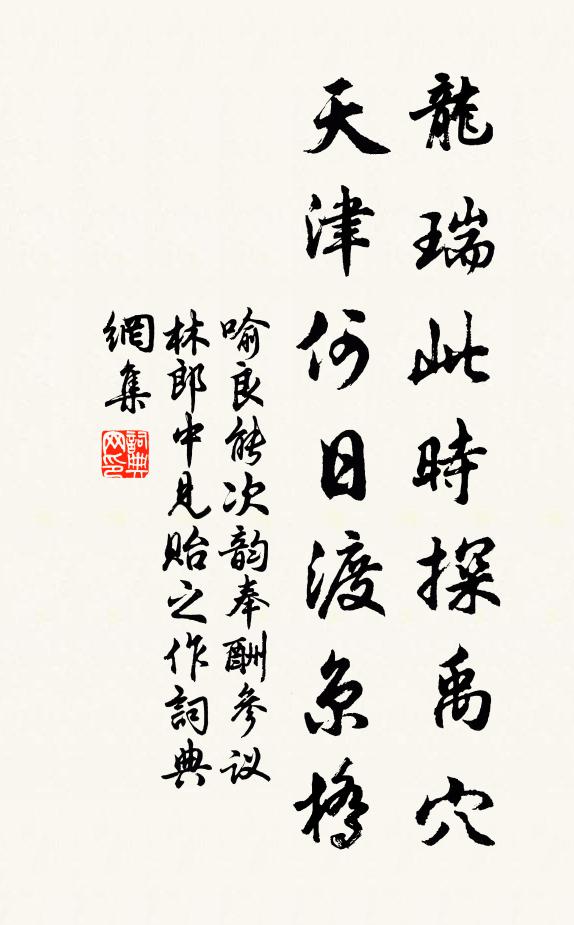 龍瑞此時探禹穴
天津何日渡京橋
喻良能次韵奉酬參议
林郎中見貽之作詞典
網集
詞典
网印